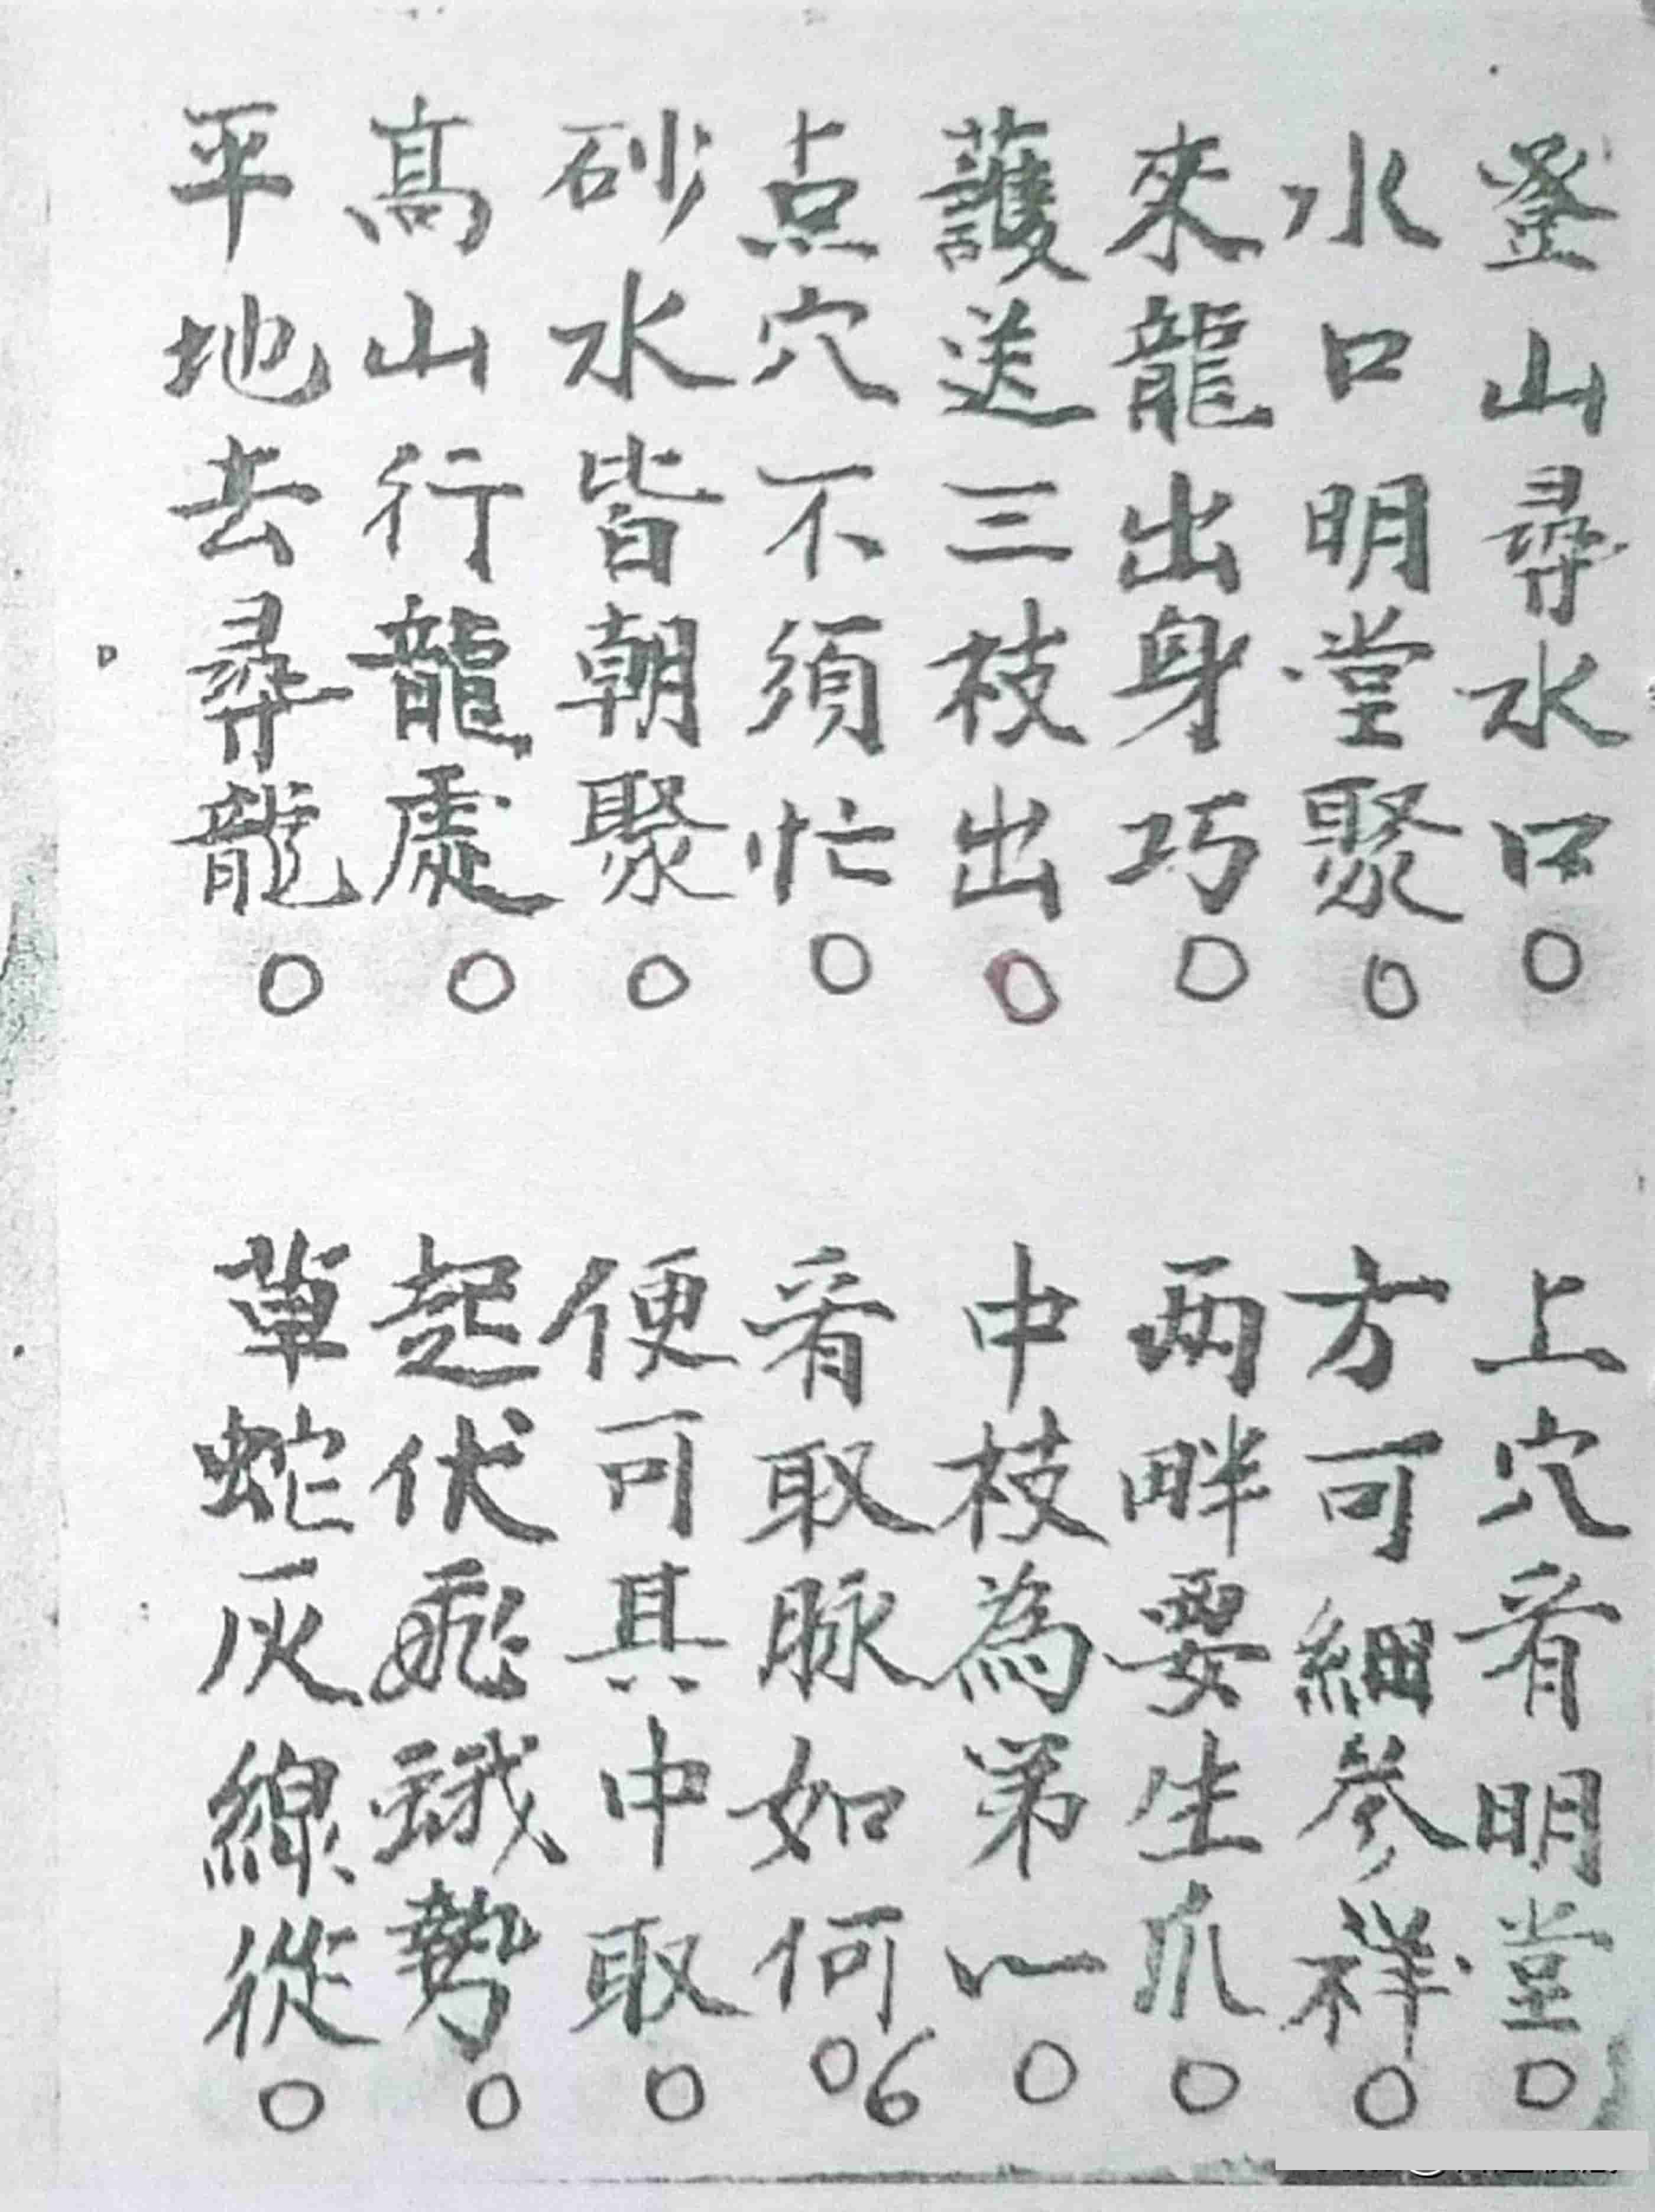 登山尋水口○
上穴看明堂○
水口明堂聚○
方可細參祥○
來龍出身巧○
兩畔要生爪○
護送三枝出○
中枝為第一○
点穴不須忙○
看取脉如何○6
砂水皆朝聚○
便可其中取○
高山行龍處○
起伏飛蛾勢○
平地去尋龍○
草蛇灰線從○